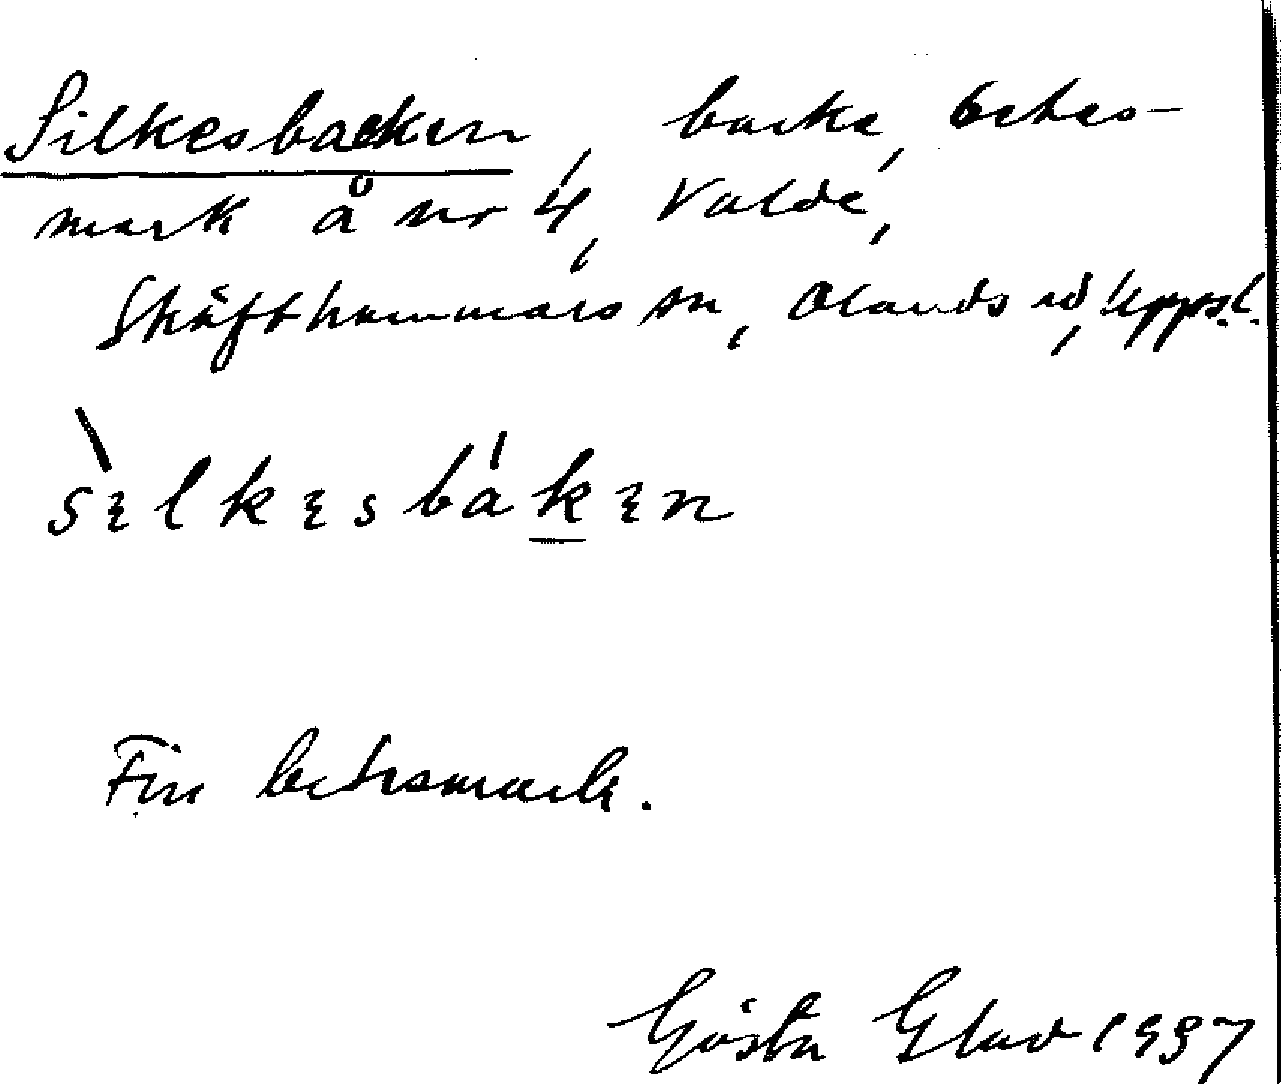 Silkesbacken, backe, betes-
mark å nr 4, Valde,
Skäfthammars sn, Olands hd, Upps.l.
sɛlkɛsbakɛn
Fin betesmark.
Gösta Glad 1937